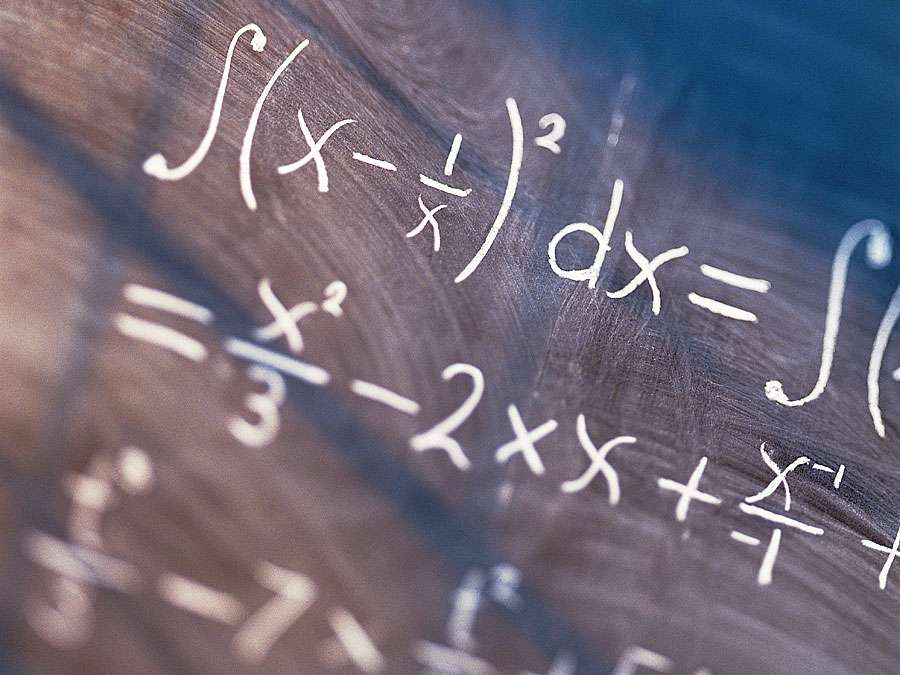 ∫(x - 1/x)² dx = ∫(
= x²/3 - 2 × x + x⁻¹/-1 +